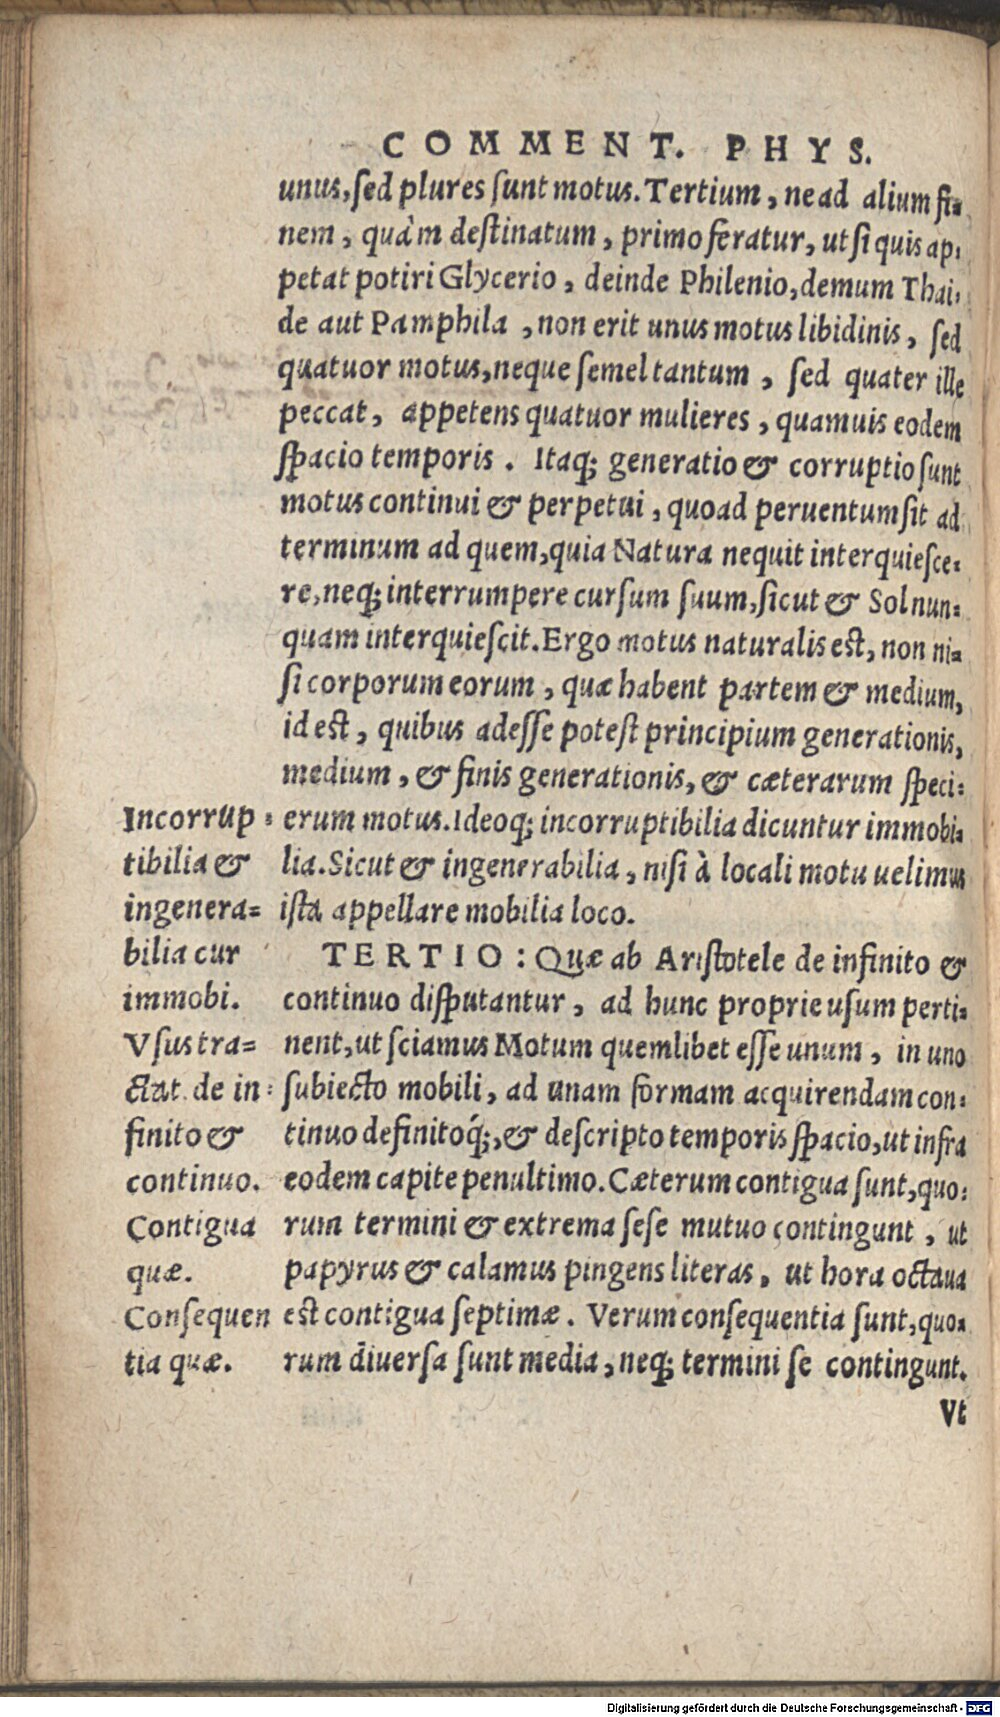 COMMENT. PHYS.
unus, sed plures sunt motus. Tertium, ne ad alium fi-
nem, quàm destinatum, primo feratur, ut si quis ap-
petat potiri Glycerio, deinde Philenio, demum Thai-
de aut Pamphila, non erit unus motus libidinis, sed
quatuor motus, neque semel tantum, sed quater ille
peccat, appetens quatuor mulieres, quamuis eodem
spacio temporis. Itaq; generatio & corruptio sunt
motus continui & perpetui, quoad peruentum sit ad
terminum ad quem, quia Natura nequit interquiesce-
re, neq; interrumpere cursum suum, sicut & Sol nun-
quam interquiescit. Ergo motus naturalis est, non ni-
si corporum eorum, quæ habent partem & medium,
id est, quibus adesse potest principium generationis,
medium, & finis generationis, & cæterarum speci-
erum motus. Ideoq; incorruptibilia dicuntur immobi-
lia. Sicut & ingenerabilia, nisi à locali motu uelimus
ista appellare mobilia loco.
TERTIO: Quæ ab Aristotele de infinito &
continuo disputantur, ad hunc proprie usum perti-
nent, ut sciamus Motum quemlibet esse unum, in uno
subiecto mobili, ad unam formam acquirendam con-
tinuo definitoq́;, & descripto temporis spacio, ut infra
eodem capite penultimo. Cæterum contigua sunt, quo-
rum termini & extrema sese mutuo contingunt, ut
papyrus & calamus pingens literas, ut hora octaua
est contigua septimæ. Verum consequentia sunt, quo-
rum diuersa sunt media, neq; termini se contingunt.
Vt
Incorrup-
tibilia &
ingenera-
bilia cur
immobi.
Vsus tra-
ctat. de in-
finito &
continuo.
Contigua
quæ.
Consequen
tia quæ.
Digitalisierung gefördert durch die Deutsche Forschungsgemeinschaft - DFG